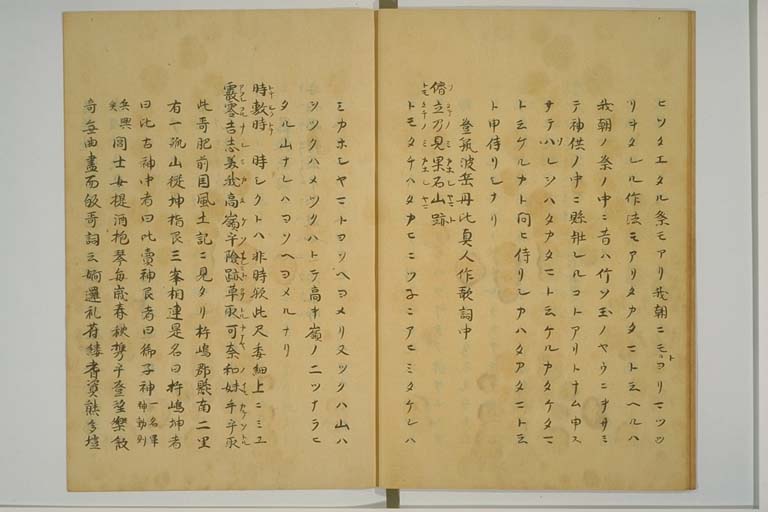 ヒツタエタル祭モアリ我朝ニモヨリマツツ
リヲタレル作法モアリタカタマト云ヘルハ
我朝ノ祭ノ中ニ昔ハ竹ソ玉ノヤウニヲサミ
テ神供ノ中ニ懸ルコトアリトナム申ス
サテハレシハタカタマト云ケルカタケタマ
ト云ケルカト問ヒ侍リシカハタカタマト云
ト申侍リシナリ
登筑波岳丹比真人作歌詞中
儕立乃見杲石山跡
トモタケハタカヒニツ子ニアヒミタケレハ
ミカホシヤマトヨソヘヨメリ又ツクハ山ハ
ツツクハメツクハトテ高キ嶺ノ二ツナラヒ
タル山ナレハヨソヘヨメルナリ
時敷時 時シクトハ非時欤此尺委細上ニミユ
霰零吉志美我高嶺乎險跡草取可奈和妹手乎取
此哥肥前国風土記ニ見タリ杵嶋郡縣南二里
有一孤山從坤指艮三峯相連是名曰杵嶋坤者
曰比古神中者曰比賣神艮者曰御子神 一名軍神動則
兵興 閭士女提酒抱琴毎歳春秋携手登望樂飲
哥舞曲盡而皈哥詞云婀邏礼符縷耆資熊多塏